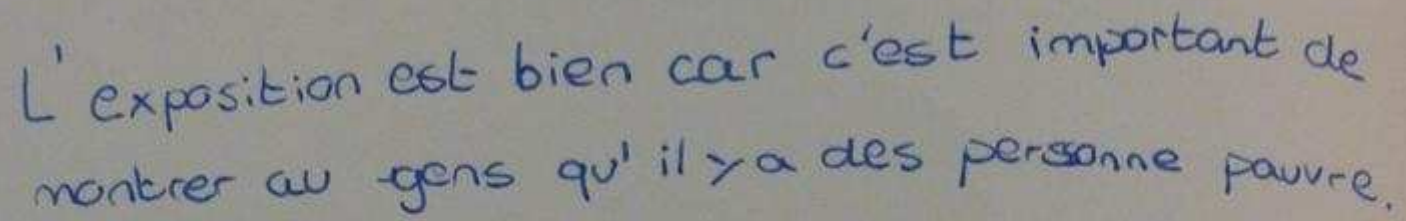 L'exposition est bien car c'est important de
montrer au gens qu'il y a des personne pauvre.